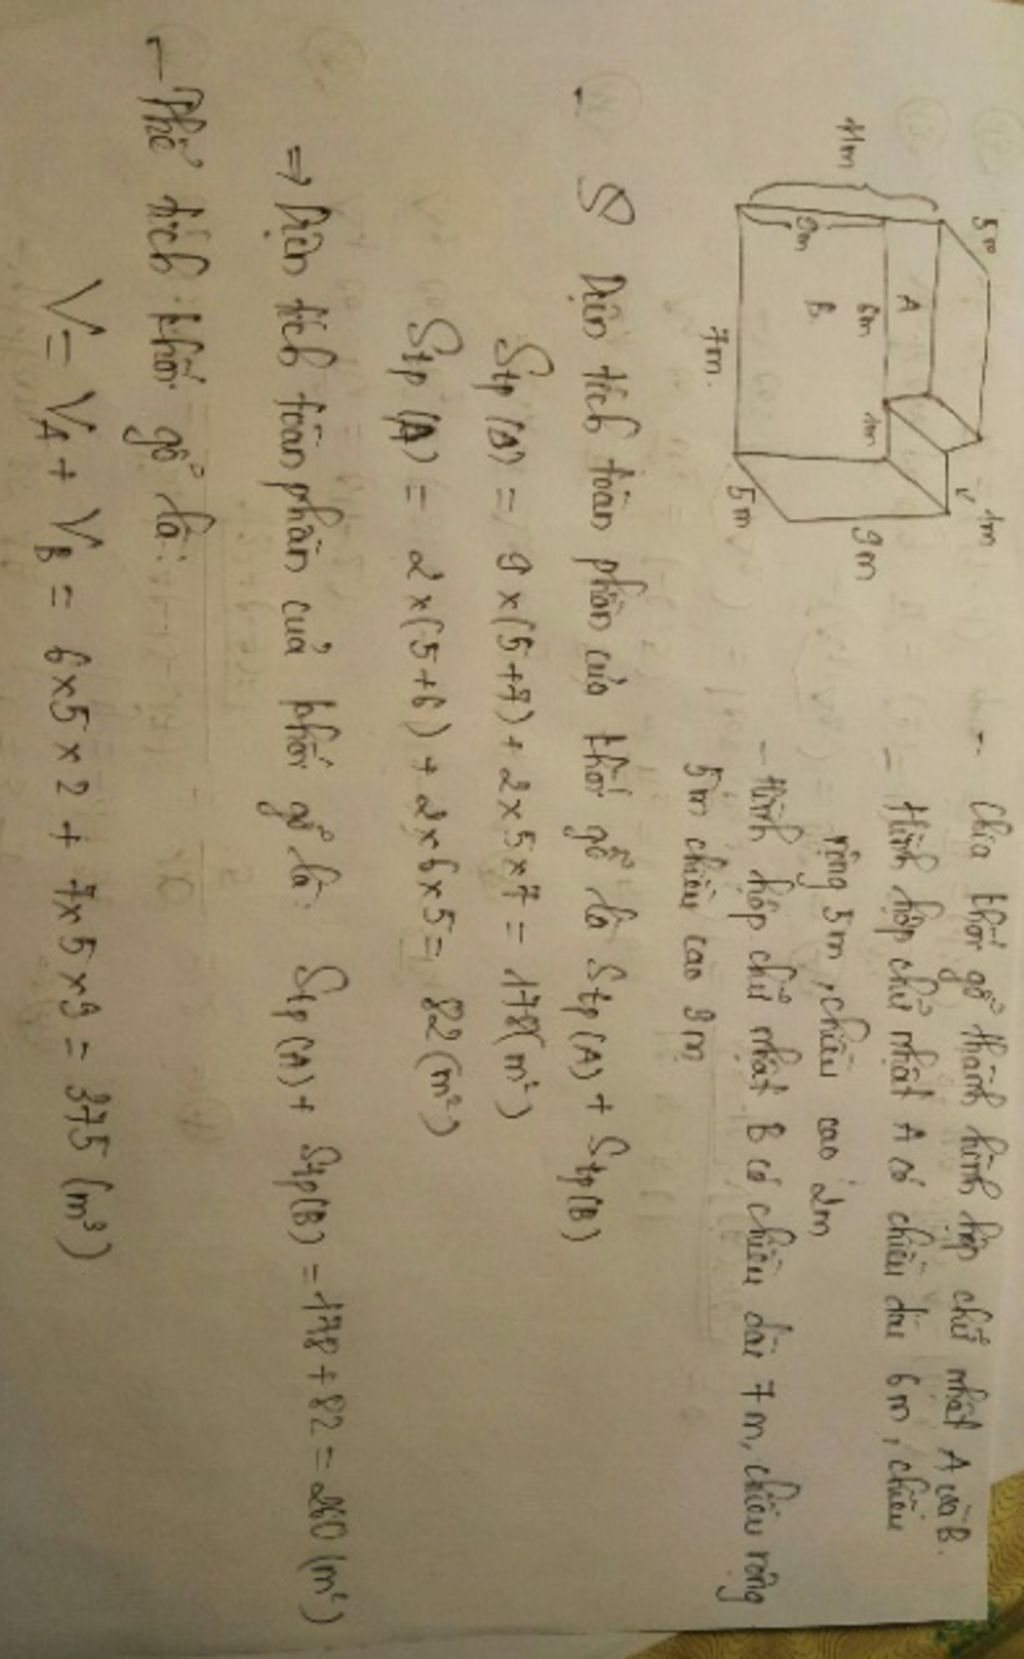 - Chia khối gỗ thành hình hộp chữ nhật A và B.
- Hình hộp chữ nhật A có chiều dài 6m, chiều
rộng 5m, chiều cao 2m
- Hình hộp chữ nhật B có chiều dài 7m, chiều rộng
5m chiều cao 9m
5m
11m
A
9m
6m
1m
1m
B.
9m
7m.
5m
- S Diện tích toàn phần của khối gỗ là Stp(A) + Stp(B)
Stp(B) = 9x(5+7) + 2x5x7 = 178(m²)
Stp(A) = 2x(5+6) + 2x6x5 = 82(m²)
⇒ Diện tích toàn phần của khối gỗ là: Stp(A) + Stp(B) = 178 + 82 = 260(m²)
- Thể tích khối gỗ là:
V = VA + VB = 6x5x2 + 7x5x9 = 375(m³)